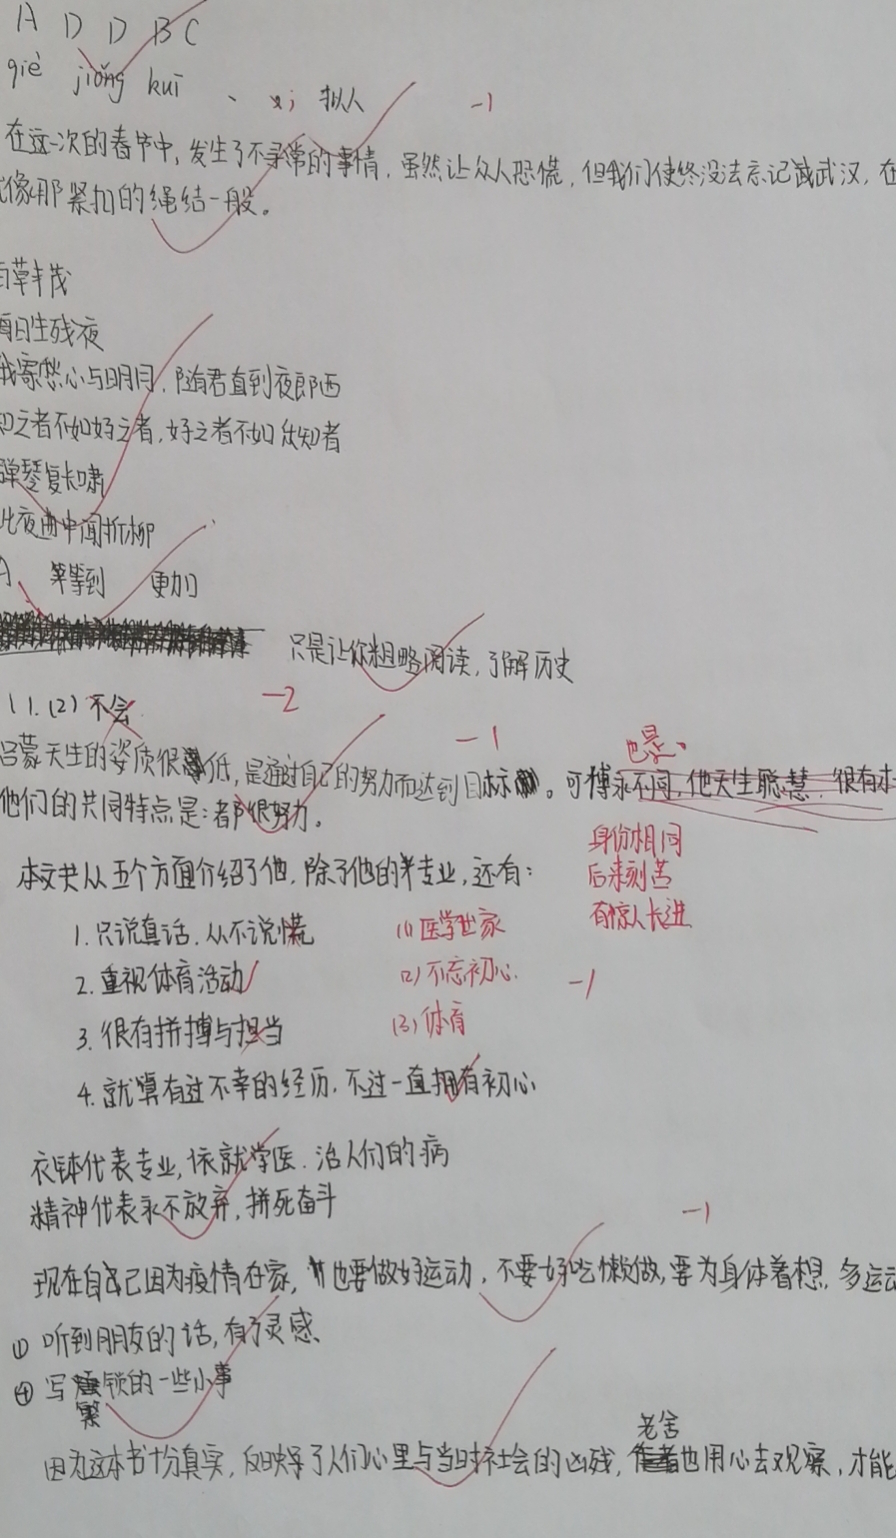 A D D B C
qiè jiǒng kuī 、 xi 拟人 -1
在这一次的春节中,发生了不寻常的事情,虽然让众人恐慌,但我们使终没法忘记武汉,在
像那紧扣的绳结一般。
草丰茂
日生残夜
我寄愁心与明月,随君直到夜郎西
知之者不如好之者,好之者不如知者
弹琴复长啸
此夜曲中闻折柳
A、 等到 更加
只是让你粗略阅读,了解历史
11.(2)不会 -2
吕蒙天生的姿质很低,是通过自己的努力而达到目标。可傅永不同,他天生聪慧,很有 -1 也是
他们的共同特点是:都很努力。
身份相同
后来刻苦
有惊人长进
本文共从五个方面介绍了他,除了他的专业,还有:
1.只说真话,从不说慌 (1)医学世家
2.重视体育活动 (2)不忘初心 -1
3.很有拼搏与担当 (3)体育
4.就算有过不幸的经历,不过一直拥有初心
衣钵代表专业,依就学医.治人们的病
精神代表永不放弃,拼死奋斗
-1
现在自己因为疫情在家,也要做好运动,不要好吃懒做,要为身体着想,多运动
① 听到朋友的话,有了灵感、
④ 写繁锁的一些小事
因为这本书十分真实,反映了人们心里与当时社会的凶残,老舍也用心去观察,才能